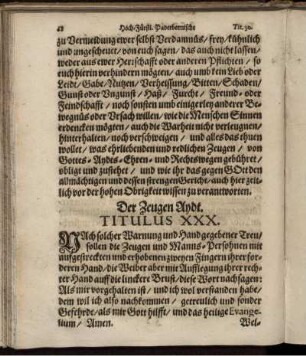 42 Hoch-Fürstl. Paderbornische Tit. 30.
zu Vermeidung ewer selbst Verdamnüs/ frey/ kühnlich
und ungescheuet/ von euch sagen/ das auch nicht lassen/
weder aus ewer Herrschafft oder anderen Pflichten/ so
euch hierin verhindern mögten/ auch umb kein Lieb oder
Leidt/ Gabe/ Nutzen/ Verheissung/ Bitten/ Schaden/
Gunst oder Ungunst/ Haß/ Furcht/ Freund- oder
Feindschafft/ noch sonsten umb einigerley anderer Be-
wegnüs oder Ursach willen/ wie die Menschen Sinnen
erdencken mögten/ auch die Warheit nicht verleugnen/
hinterhalten/ noch verschweigen/ und alles das thuen
wollet/ was ehrliebenden und redlichen Zeugen/ von
Gottes- Aydts- Ehren- und Rechtswegen gebühret/
obligt und zustehet/ und wie ihr das gegen GOtt den
allmächtigen und dessen strengen Gericht/ auch hier zeit-
lich vor der hohen Obrigkeit wissen zu verantworten.
Der Zeugen Aydt.
TITULUS XXX.
NAch solcher Warnung und Handgegebener Treu/
sollen die Zeugen und Manns-Persohnen mit
auffgestreckten und erhobenen zweyen Fingern ihrer for-
deren Hand/ die Weiber aber mit Aufflegung ihrer rech-
ter Hand auff die linckere Brust/ diese Wort nachsagen:
Als mir vorgehalten ist/ und ich wol verstanden habe/
dem wil ich also nachkommen/ getreulich und sonder
Gefehrde/ als mir Gott hilfft/ und das heilige Evange-
lium/ Amen.
Wel-